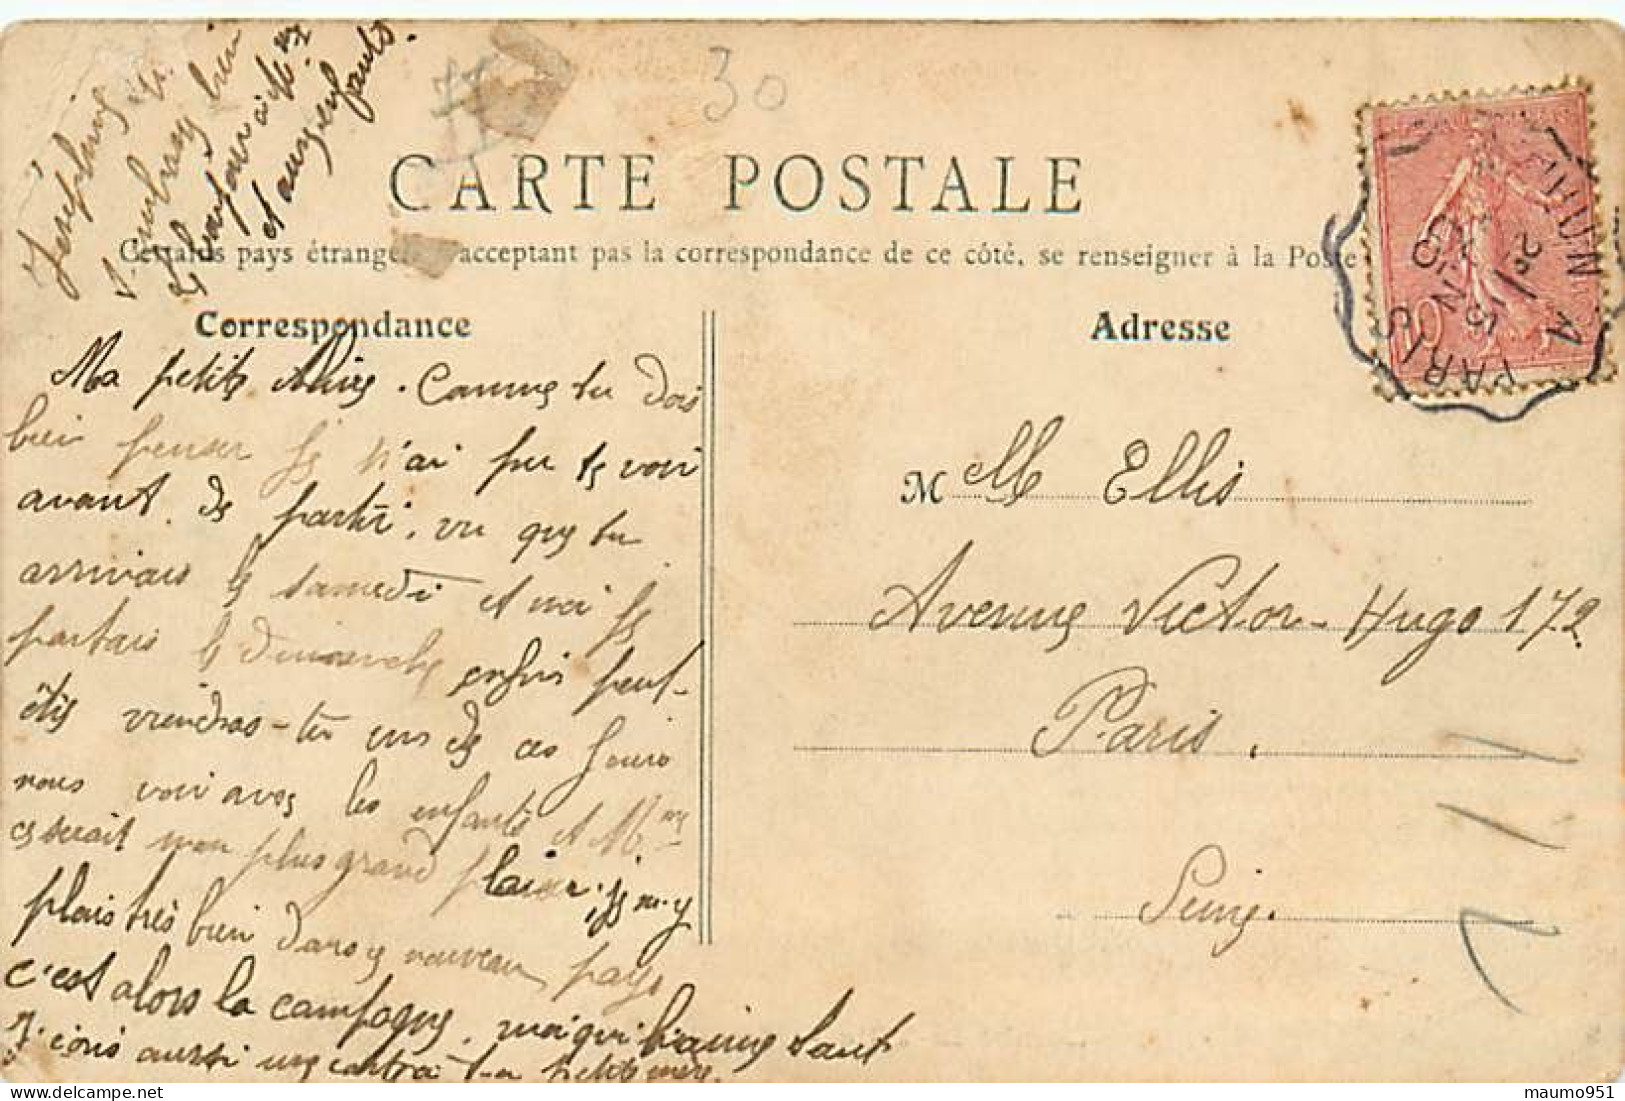 J'en plus
t'embrasse bien
Le bonjour à Mme
et aux enfants.
77
30
CARTE POSTALE
Certains pays étrangers n'acceptant pas la correspondance de ce côté, se renseigner à la Poste
Correspondance
Adresse
Ma petite Comme tu dois
bien penser je n'ai pu te voir
avant de partir, vu que tu
arrivais le samedi et moi je
partais le dimanche enfin peut-
être viendras-tu un de ces jours
nous voir avec les enfants et Mme
ce serait mon plus grand plaisir. je m'y
plais très bien dans ce nouveau pays
c'est alors la campagne, moi qui l'aime tant
J'écris aussi une carte à ta petite mère.
Melle Ellis
Avenue Victor-Hugo 172
Paris.
Seine.
10
PARIS A
maumo951